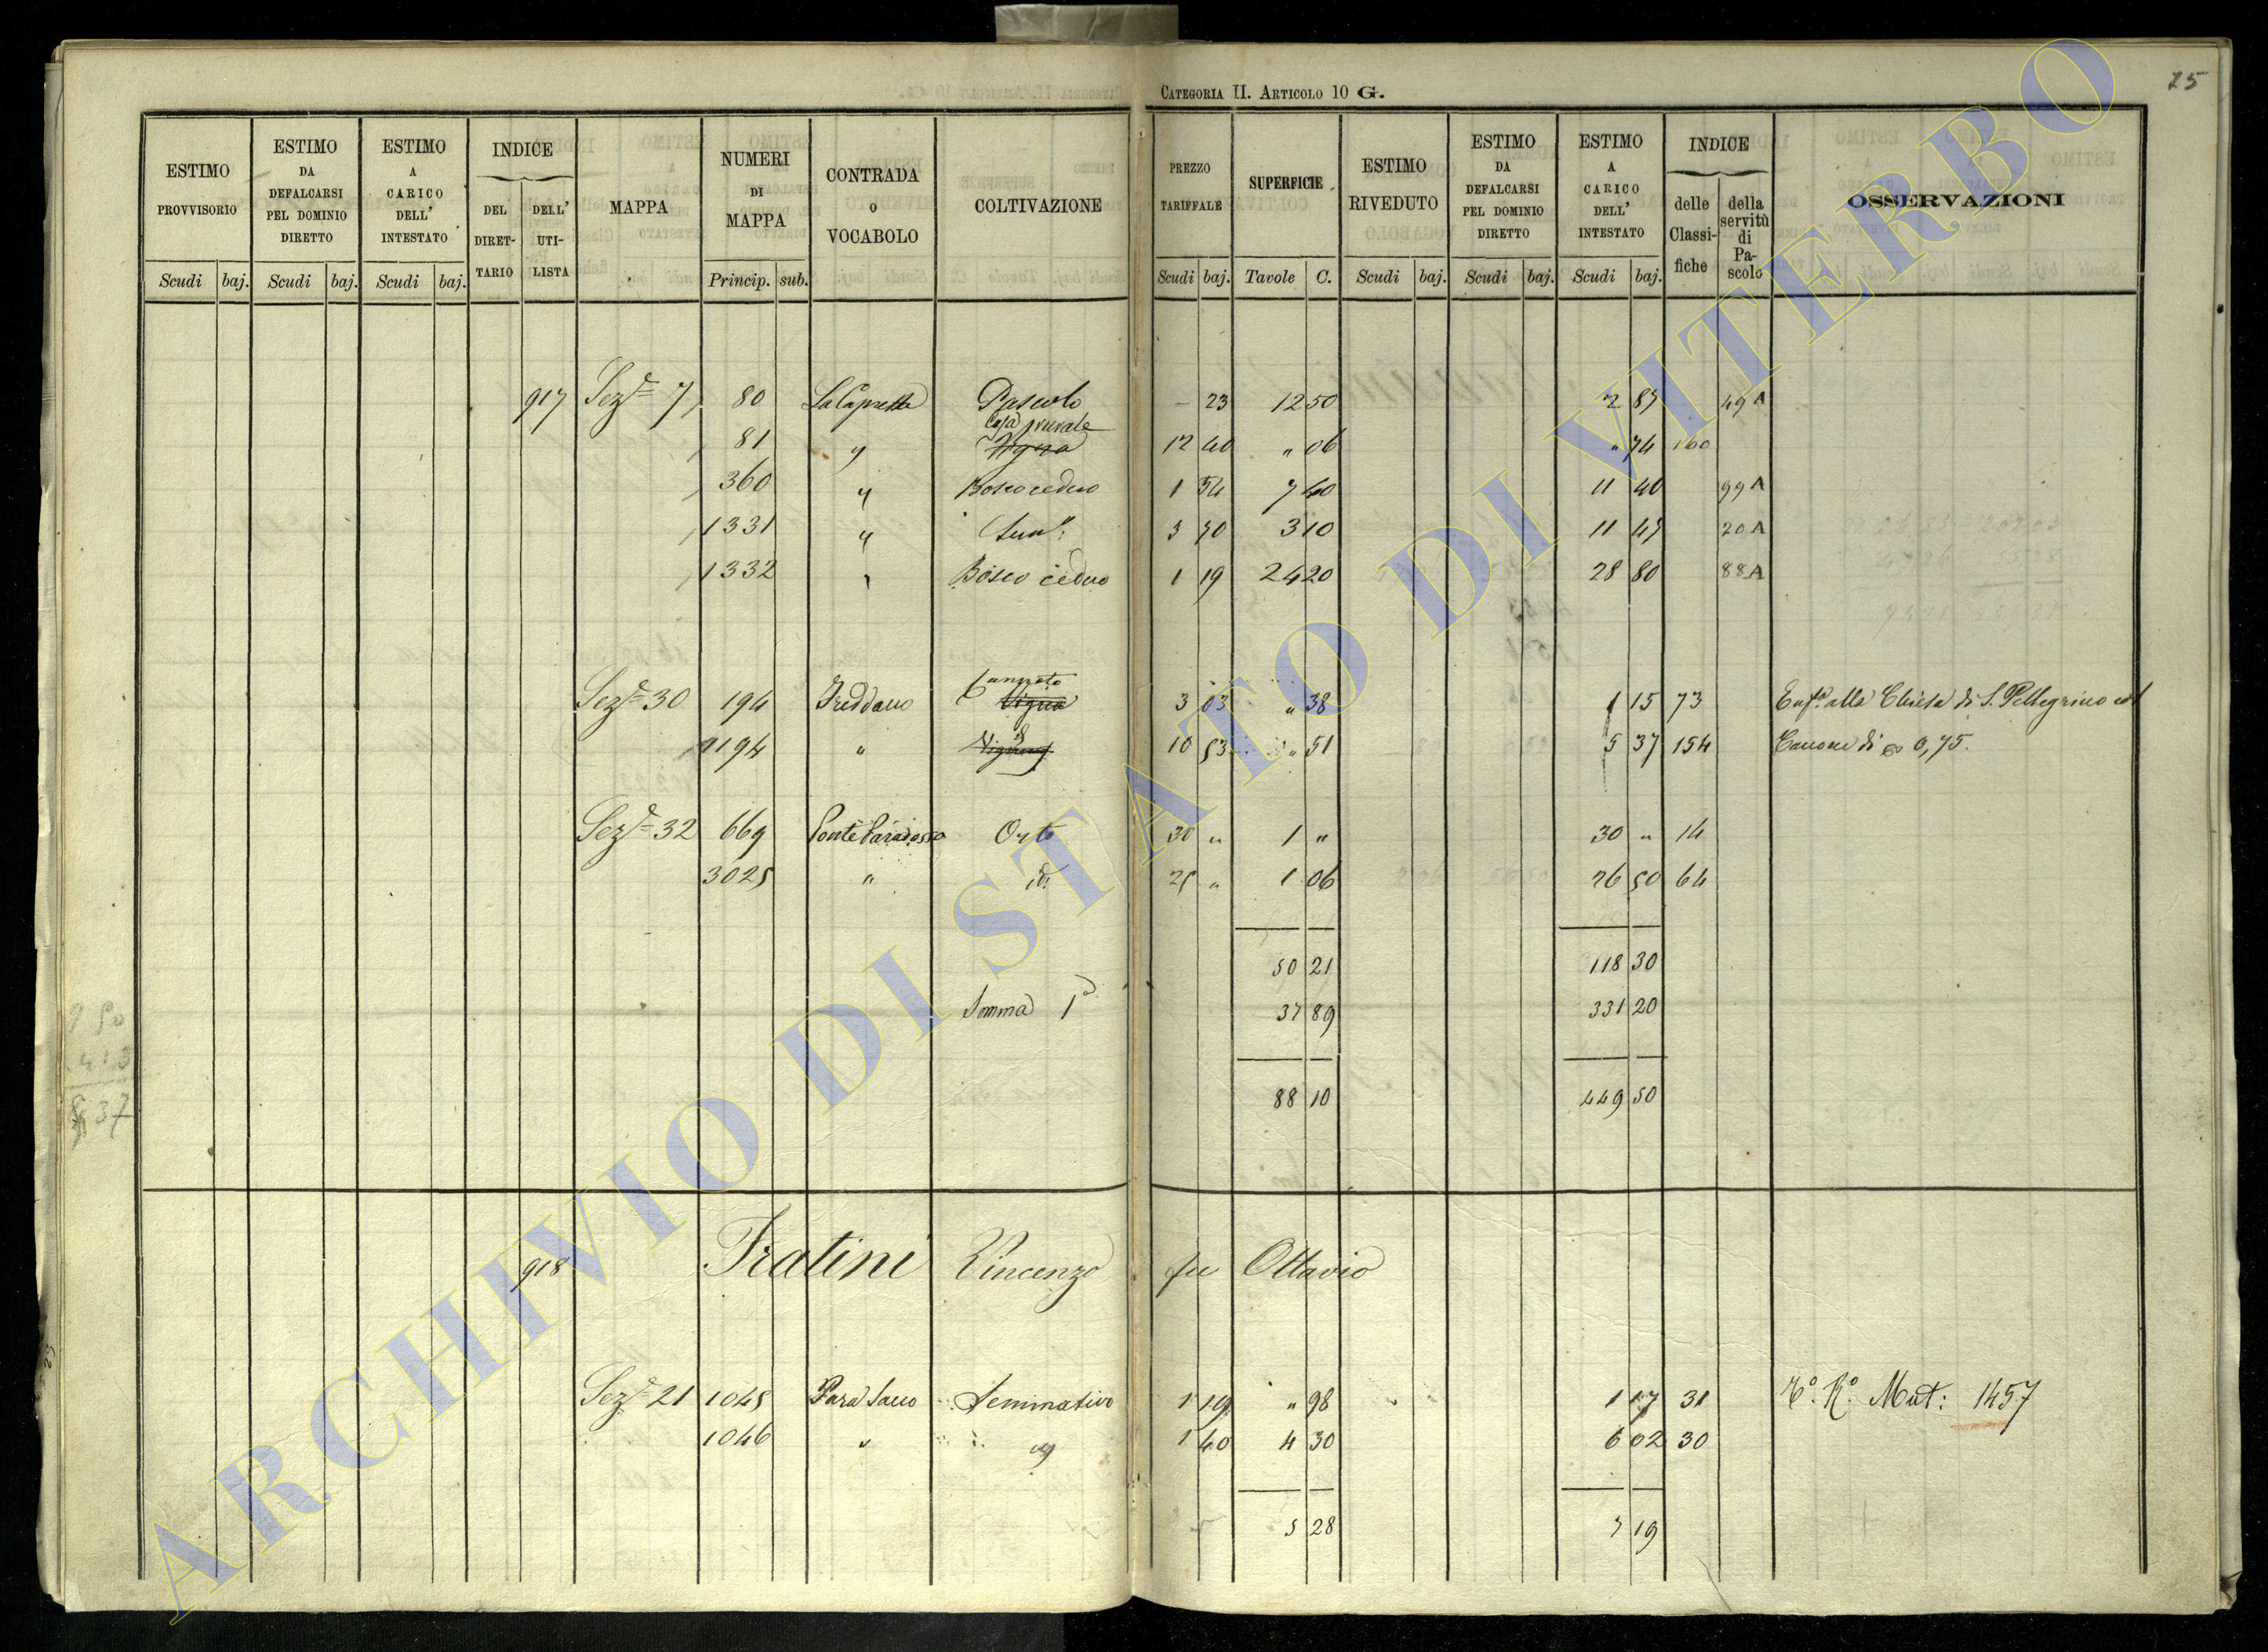 CATEGORIA II. ARTICOLO 10 G.
75
ESTIMO PROVVISORIO
ESTIMO DA DEFALCARSI PEL DOMINIO DIRETTO
ESTIMO A CARICO DELL' INTESTATO
INDICE
DEL DIRET-TARIO
DELL' UTI-LISTA
MAPPA
NUMERI DI MAPPA
CONTRADA o VOCABOLO
COLTIVAZIONE
PREZZO TARIFFALE
SUPERFICIE
ESTIMO RIVEDUTO
ESTIMO DA DEFALCARSI PEL DOMINIO DIRETTO
ESTIMO A CARICO DELL' INTESTATO
INDICE
delle Classi-fiche
della servitù di Pa-scolo
OSSERVAZIONI
Scudi baj. Scudi baj. Scudi baj. Princip. sub. Scudi baj. Tavole C. Scudi baj. Scudi baj. Scudi baj.
917 Sez.e 7 80 Pascolo - 23 12 50 2 87 49 A
Casa rurale
81 " Vigna 12 40 " 06 " 74 160
360 " Bosco ceduo 1 54 7 40 11 40 99 A
1331 " Sem.o 3 70 3 10 11 47 20 A
1332 " Bosco ceduo 1 19 24 20 28 80 88 A
Canneto
Sez.e 30 194 Freddano Vigna 3 03 " 38 1 15 73 Enf.a alla Chiesa di S. Pellegrino col
1194 " Vigna 10 53 " 51 5 37 154 Canone di 0,75.
Sez.e 32 669 Ponte Paradosso Orto 30 " 1 " 30 " 14
3025 " id. 25 " 1 06 26 50 64
50 21 118 30
Somma 1a 37 89 331 20
88 10 449 50
8 37
918 Fratini Vincenzo fu Ottavio
Sez.e 21 1045 Para Sacco Seminativo 1 19 " 98 1 17 31 Mut: 1457
1046 " 1 40 4 30 6 02 30
5 28 7 19
ARCHIVIO DI STATO DI VITERBO